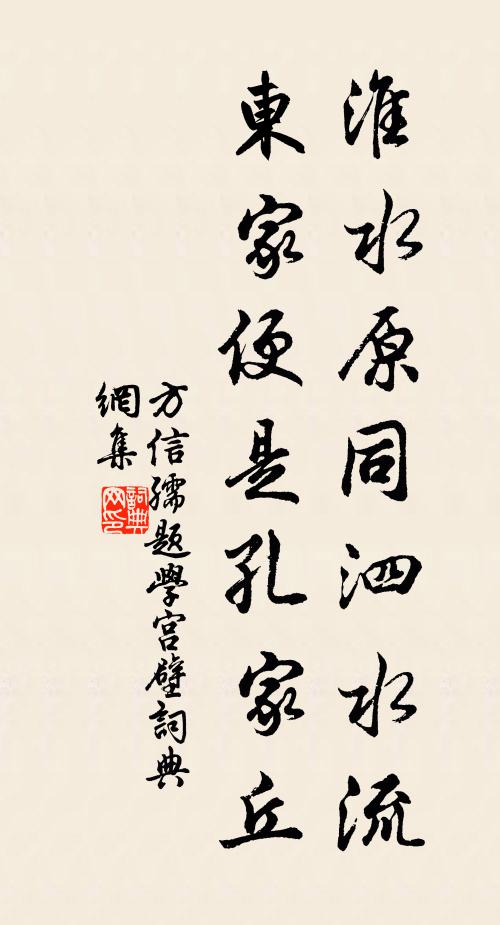 淮水原同泗水流
東家便是孔家丘
方信孺題學宮壁詞典
網集
詞典網印